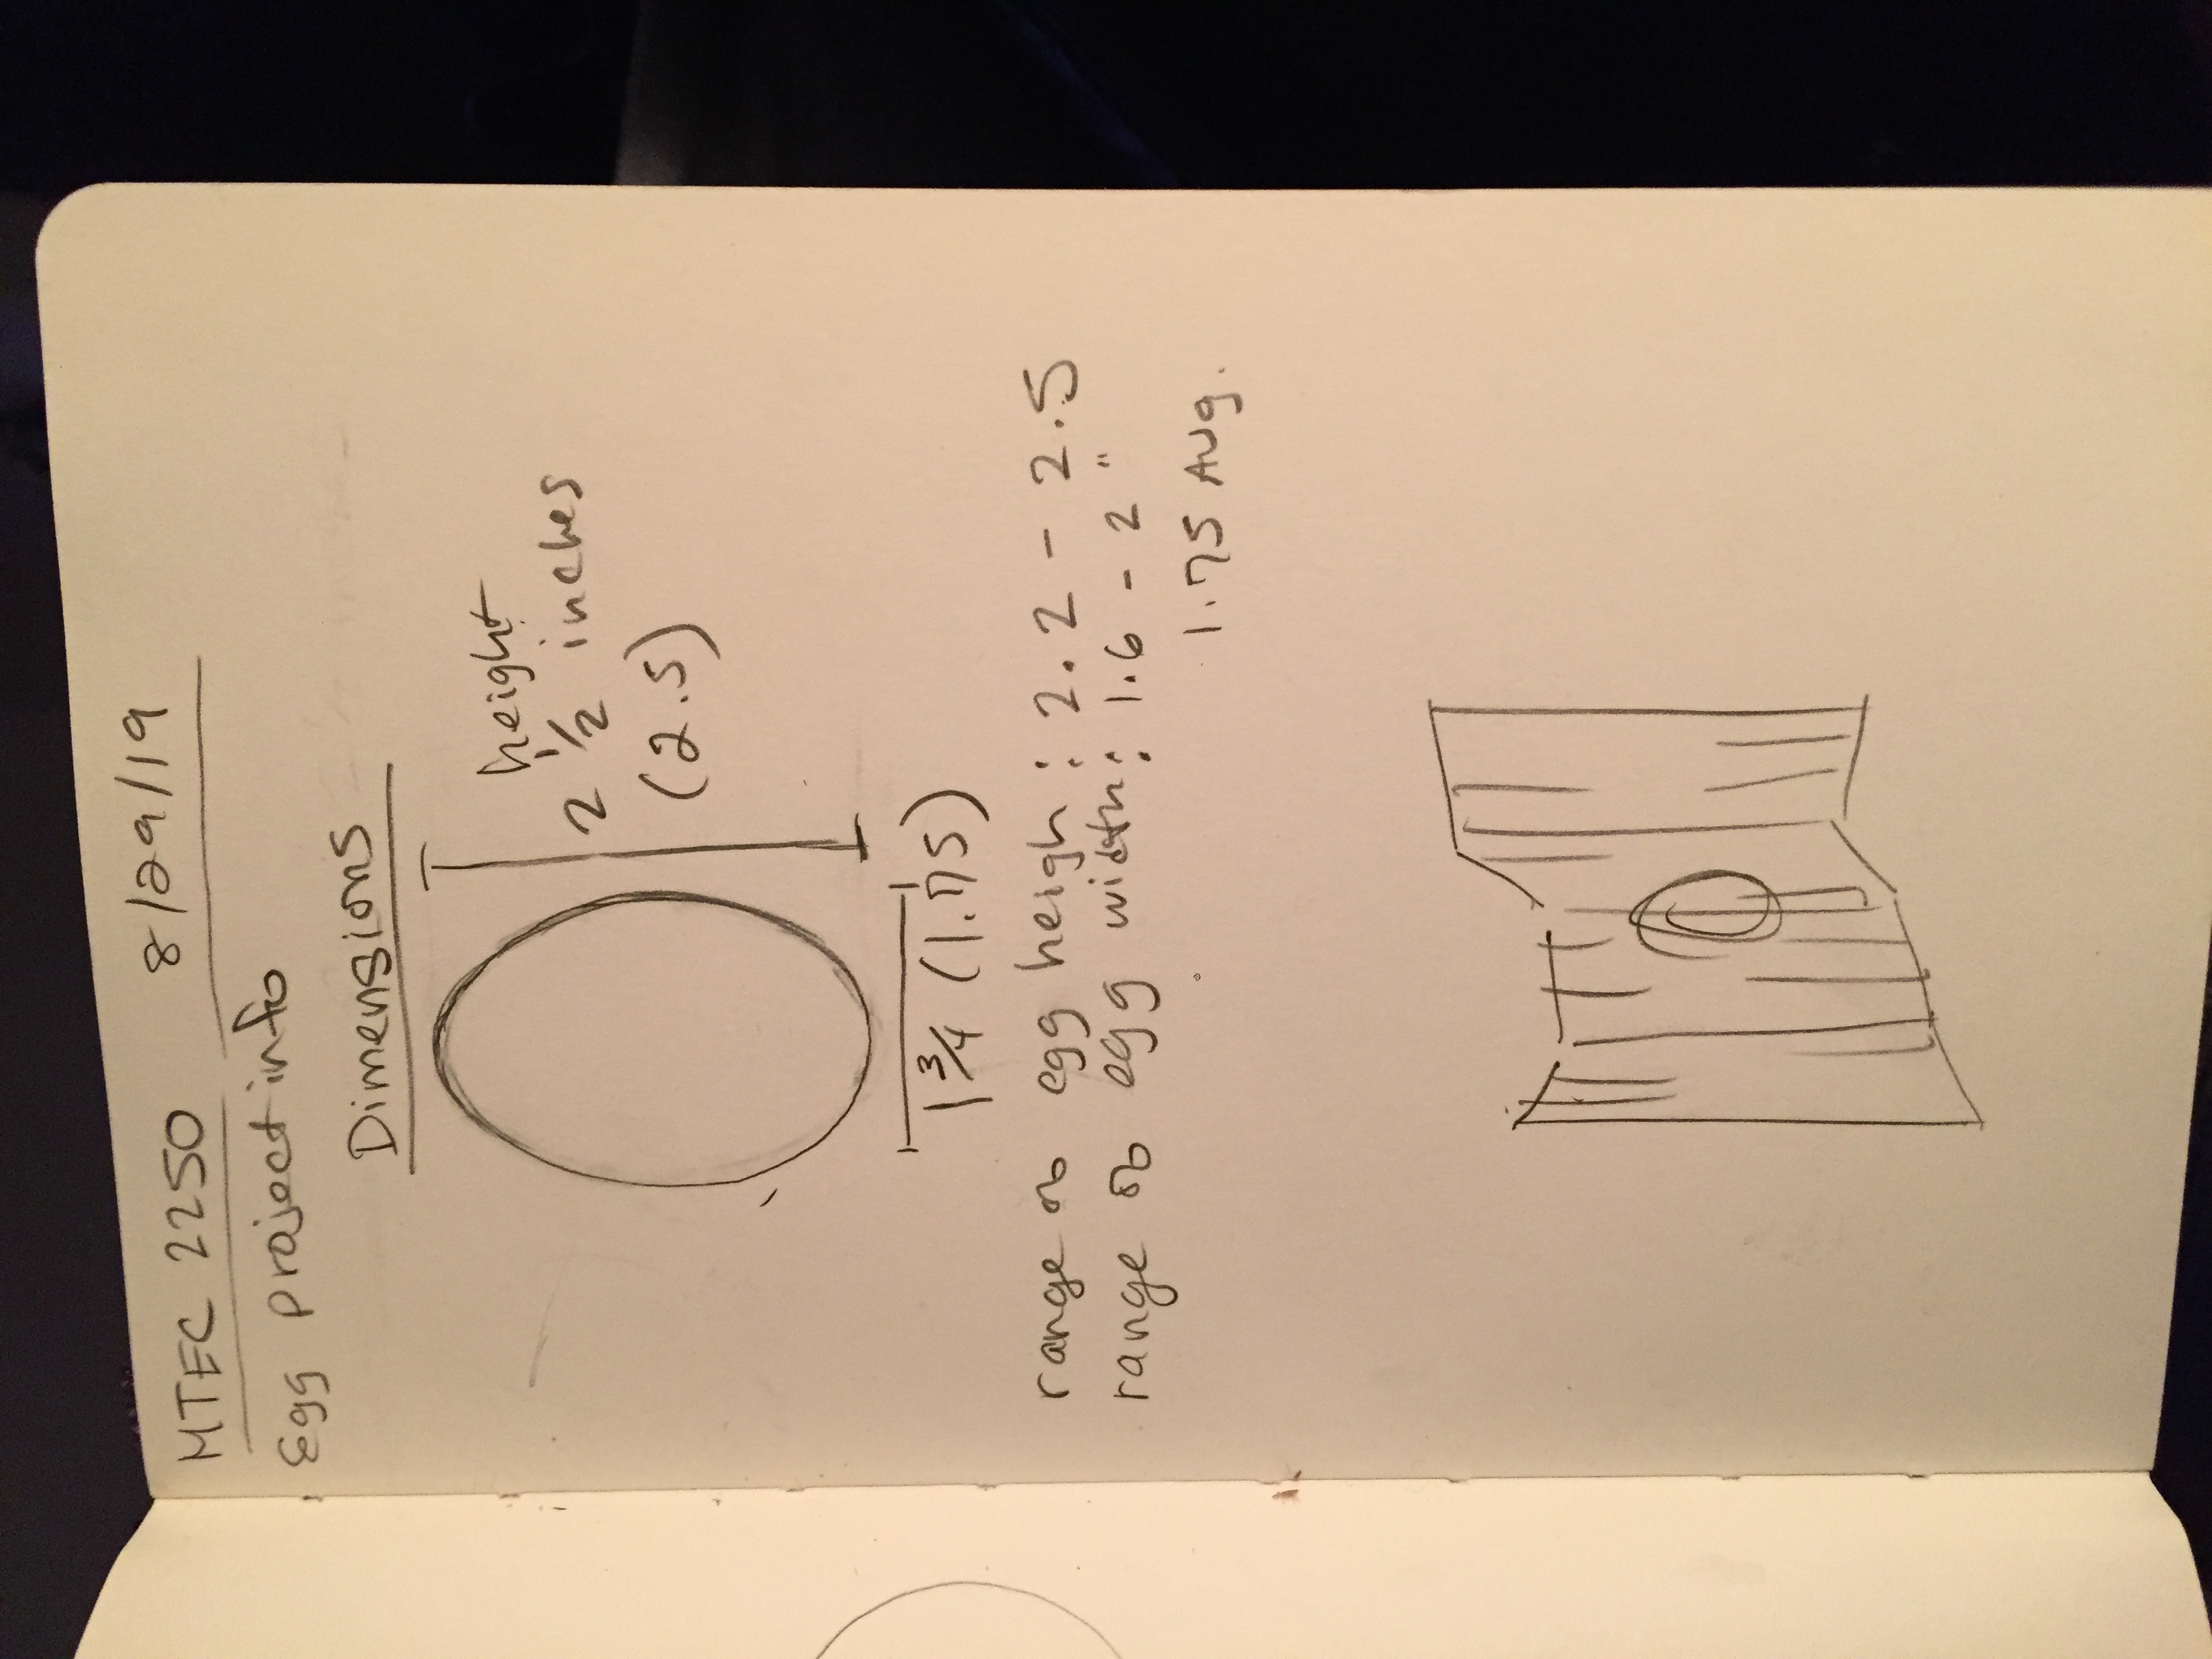 MTEC 2250 8/29/19
Egg project info
Dimensions
height
2 1/2 inches
(2.5)
1 3/4 (1.75)
range of egg heigh: 2.2 - 2.5
range of egg width: 1.6 - 2"
1.75 Avg.